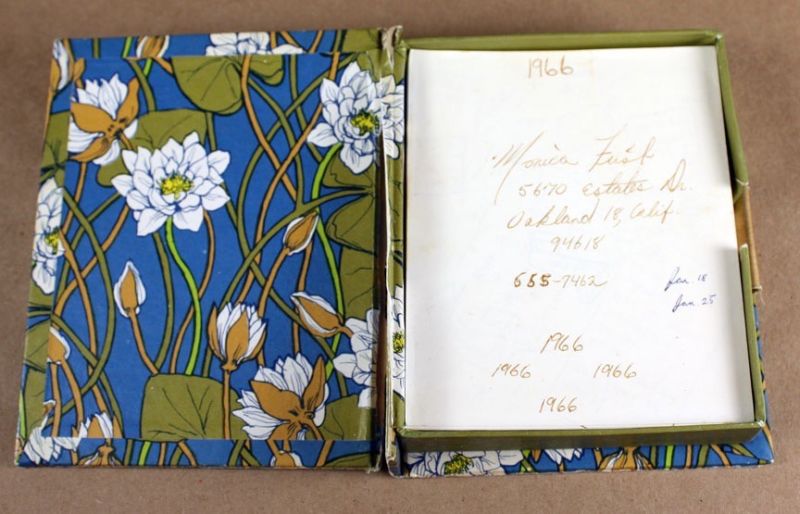 1966
Monica
5670 Estates Dr.
Oakland 18, Calif.
94618
655-7462
Jan. 18
Jan. 25
1966
1966 1966
1966